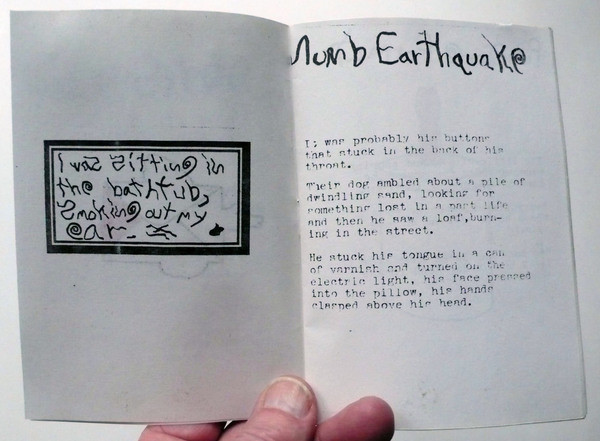 I was sitting in
the bathtub,
smoking out my
ear.
Numb Earthquake
It was probably his buttons
that stuck in the back of his
throat.
Their dog ambled about a pile of
dwindling sand, looking for
something lost in a past life
and then he saw a loaf,burn-
ing in the street.
He stuck his tongue in a can
of varnish and turned on the
electric light, his face pressed
into the pillow, his hands
clasped above his head.